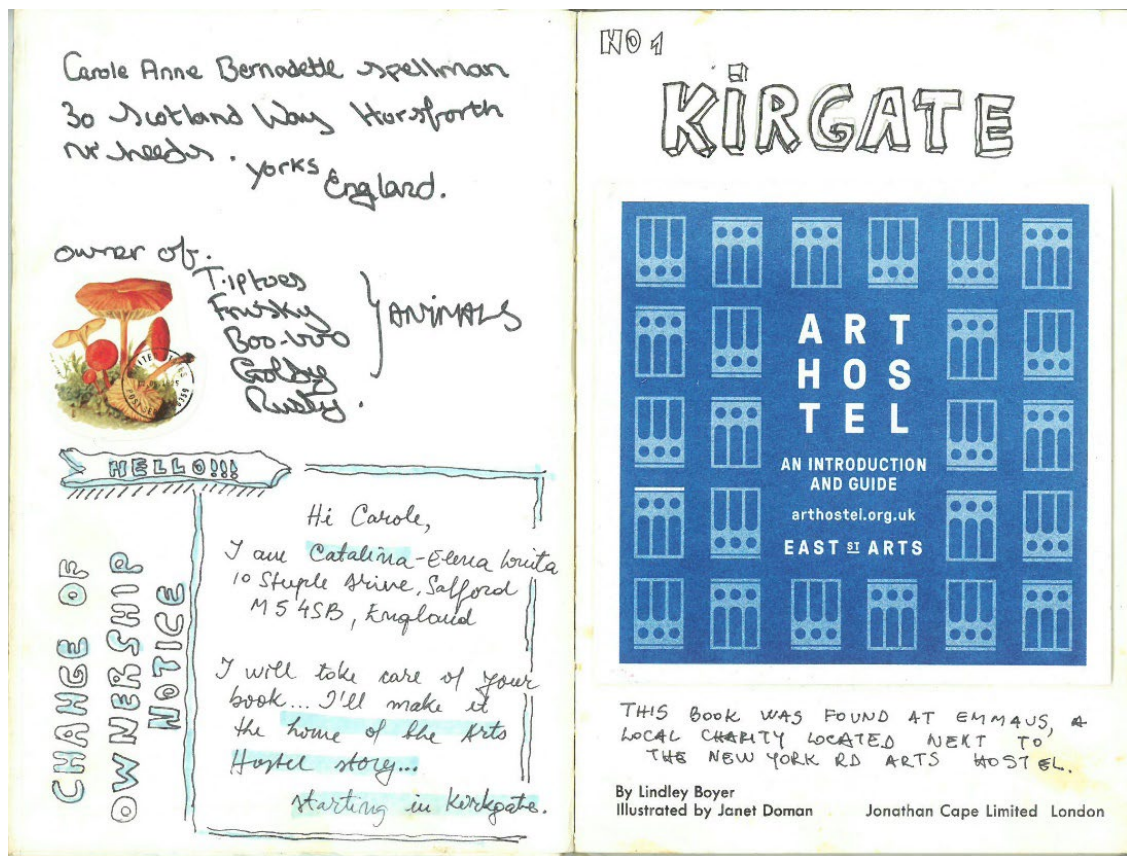 Carole Anne Bernadette Spellman
30 Scotland Way Horsforth
nr Leeds. Yorks England.
owner of.
Tiptoes
Frisky
Boo-boo
Goldy
Rusty.
ANIMALS
HELLO!!!
CHANGE OF
OWNERSHIP
NOTICE
Hi Carole,
I am Catalina-Elena
10 Steeple Drive, Salford
M5 4SB, England
I will take care of your
book... I'll make it
the home of the Arts
Hostel story...
starting in Kirkgate.
NO 1
KIRGATE
ART
HOS
TEL
AN INTRODUCTION
AND GUIDE
arthostel.org.uk
EAST ST ARTS
THIS BOOK WAS FOUND AT EMMAUS, A
LOCAL CHARITY LOCATED NEXT TO
THE NEW YORK RD ARTS HOSTEL.
By Lindley Boyer
Illustrated by Janet Doman Jonathan Cape Limited London